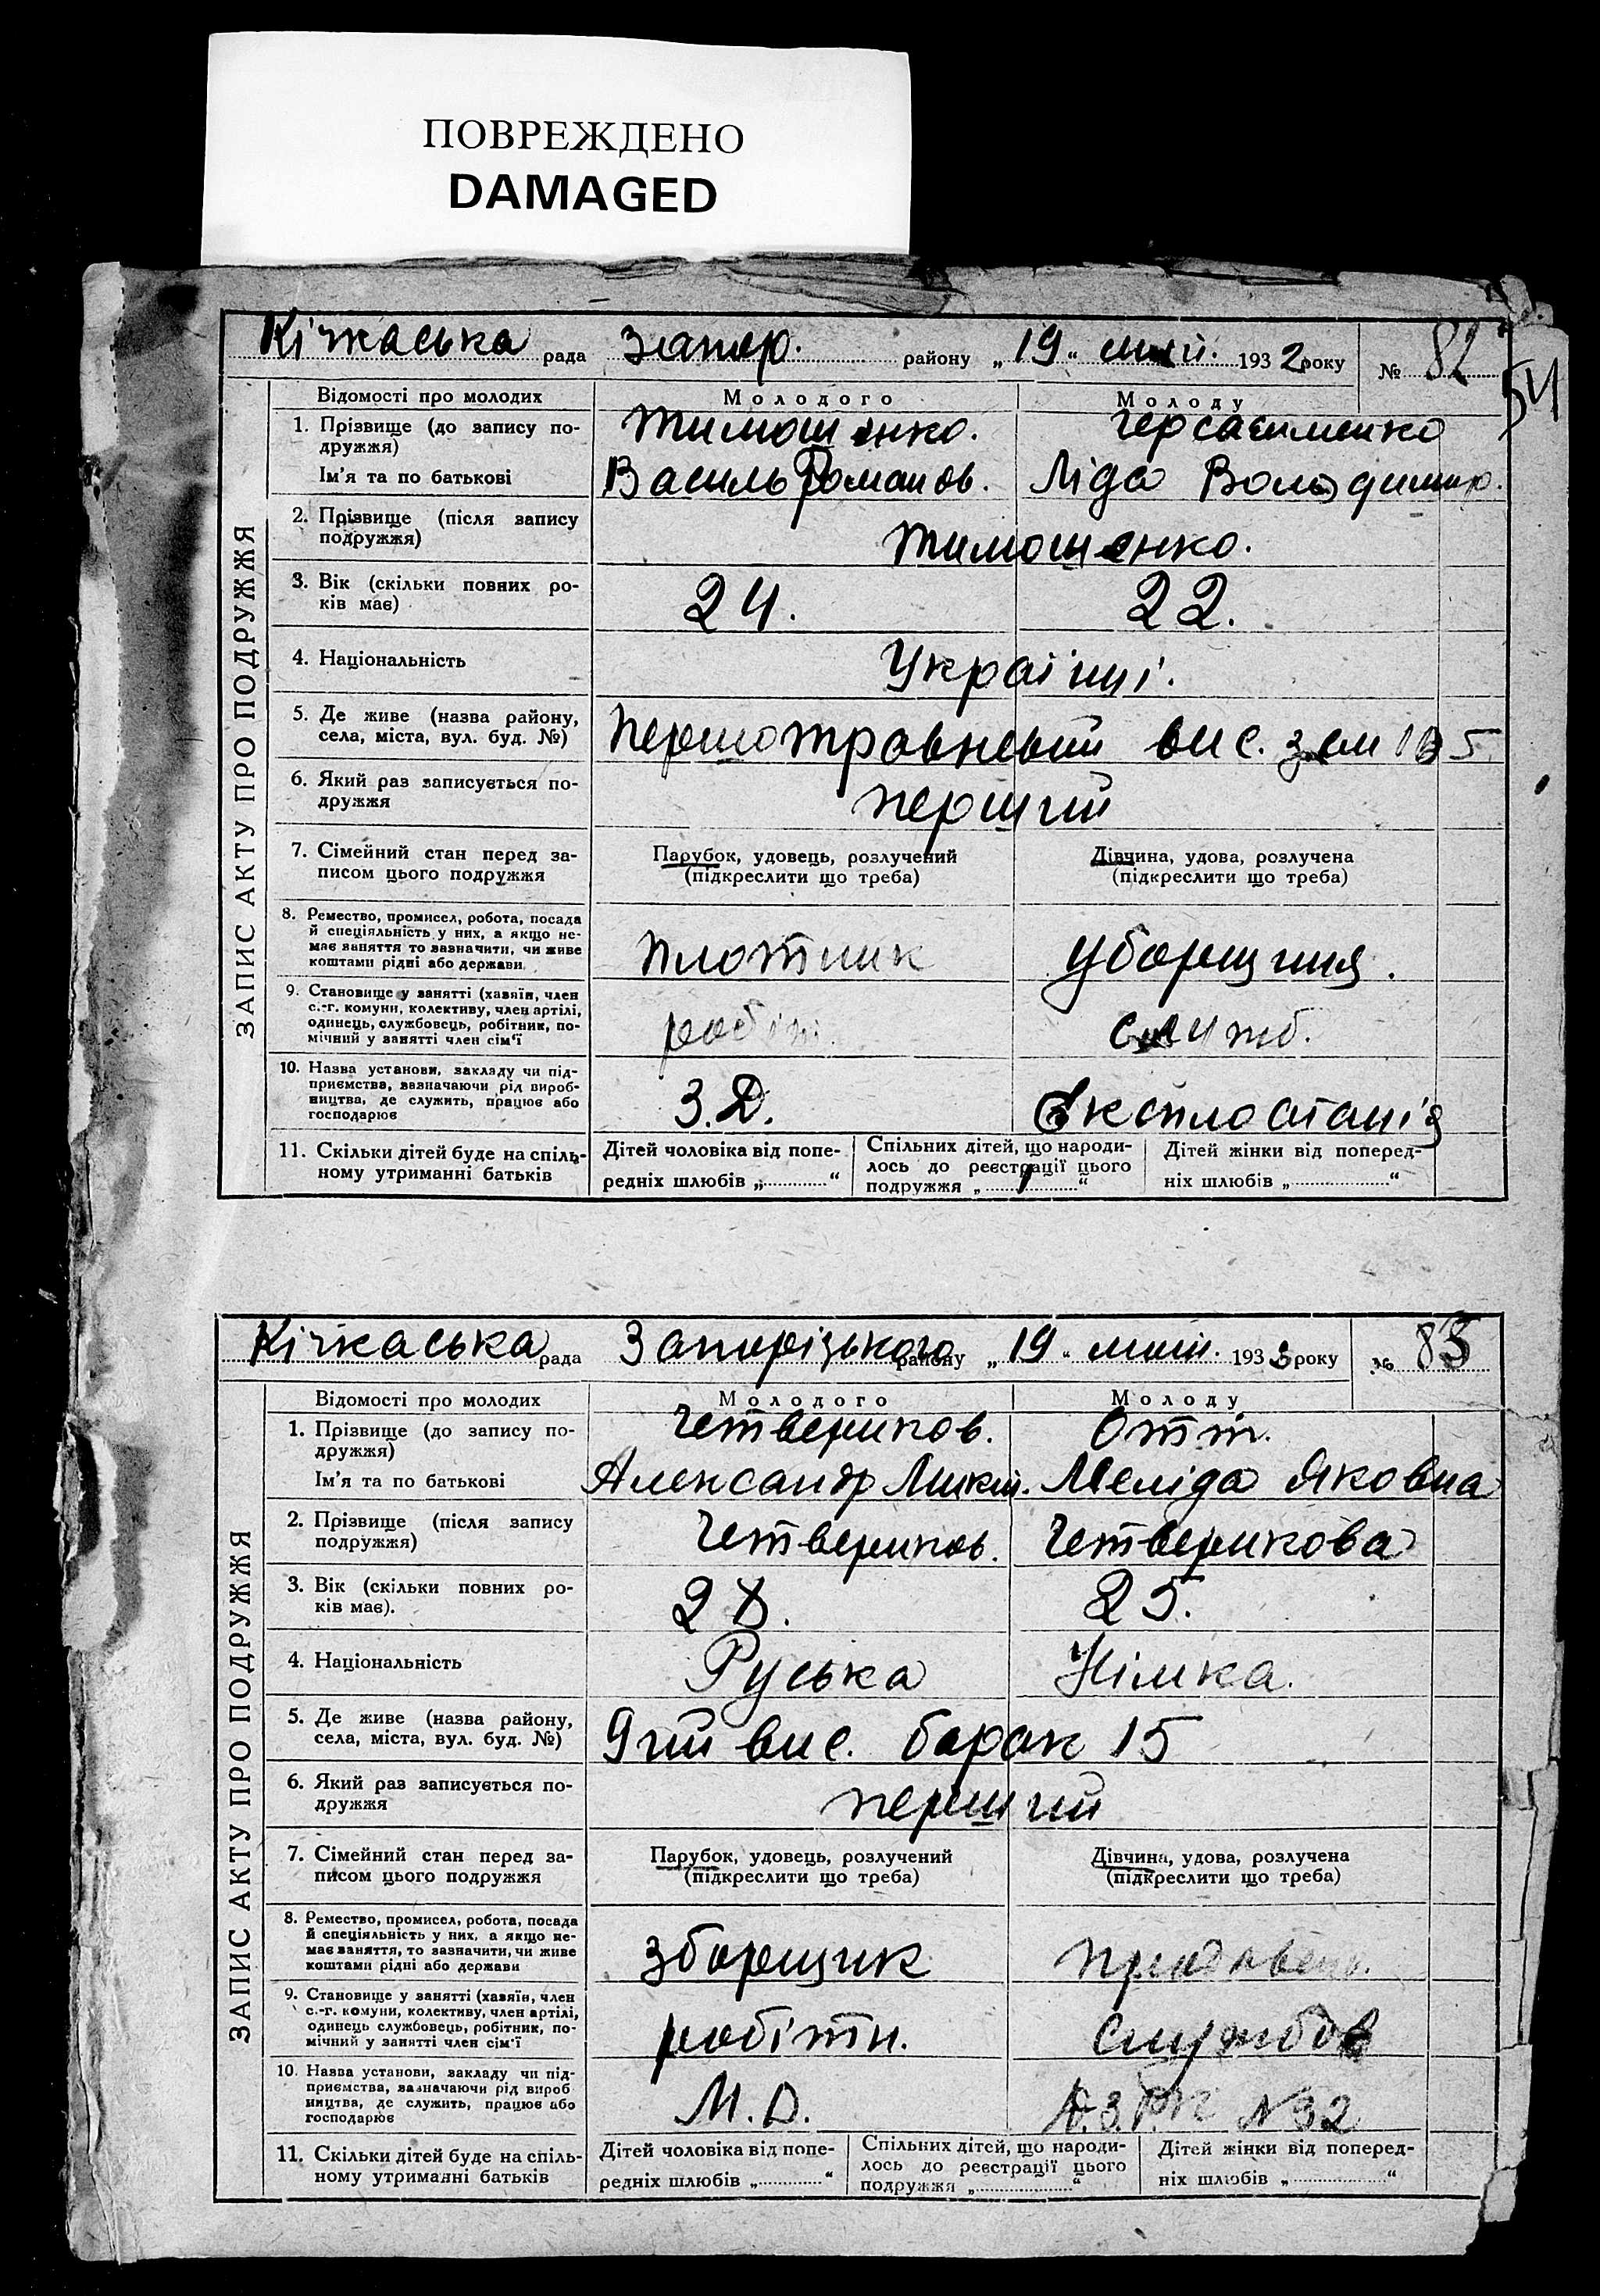 ПОВРЕЖДЕНО
DAMAGED
Кічкаська рада Запор. району „19“ 1932 року № 82
54
ЗАПИС АКТУ ПРО ПОДРУЖЖЯ
Відомості про молодих Молодого Молоду
1. Прізвище (до запису по- Тимошенко.
дружжя)
Ім'я та по батькові Василь Романов. Ліда Володимир.
2. Прізвище (після запису
подружжя) Тимошенко.
3. Вік (скільки повних ро- 24. 22.
ків має)
4. Національність Українці.
5. Де живе (назва району, Першотравневий вис.
села, міста, вул. буд. №)
6. Який раз записується по- перший
дружжя
7. Сімейний стан перед за- Парубок, удовець, розлучений Дівчина, удова, розлучена
писом цього подружжя (підкреслити що треба) (підкреслити що треба)
8. Ремество, промисел, робота, посада
й спеціяльність у них, а якщо не-
має заняття то зазначити, чи живе Плотник уборщиця.
коштами рідні або держави
9. Становище у занятті (хазяїн, член
с.-г. комуни, колективу, член артілі,
одинець, службовець, робітник, по- робітн. служб.
мічний у занятті член сім'ї
10. Назва установи, закладу чи під-
приємства, зазначаючи рід вироб-
ництва, де служить, працює або З.Д. Експлоатація
господарює
11. Скільки дітей буде на спіль- Дітей чоловіка від попе- Спільних дітей, що народи- Дітей жінки від поперед-
ному утриманні батьків редніх шлюбів „ “ лось до реєстрації цього ніх шлюбів „ “
подружжя „ 1 “
Кічкаська рада Запорізького району „19“ 193 року № 83
ЗАПИС АКТУ ПРО ПОДРУЖЖЯ
Відомості про молодих Молодого Молоду
1. Прізвище (до запису по- Четвериков. Отт.
дружжя)
Ім'я та по батькові Александр Микит. Меліда Яковна
2. Прізвище (після запису Четвериков. Четверикова
подружжя)
3. Вік (скільки повних ро- 28. 25.
ків має).
4. Національність Руська Німка.
5. Де живе (назва району, 9тий вис. барак 15
села, міста, вул. буд. №)
6. Який раз записується по- перший
дружжя
7. Сімейний стан перед за- Парубок, удовець, розлучений Дівчина, удова, розлучена
писом цього подружжя (підкреслити що треба) (підкреслити що треба)
8. Ремество, промисел, робота, посада
й спеціяльність у них, а якщо не-
має заняття, то зазначити, чи живе зборщик продавець.
коштами рідні або держави
9. Становище у занятті (хазяїн, член
с.-г. комуни, колективу, член артілі,
одинець службовець, робітник, по- робітн. службов
мічний у занятті член сім'ї
10. Назва установи, закладу чи під-
приємства, зазначаючи рід вироб
ництва, де служить, працює або М.Д. №32
господарює
11. Скільки дітей буде на спіль- Дітей чоловіка від попе- Спільних дітей, що народи- Дітей жінки від поперед-
ному утриманні батьків редніх шлюбів „ “ лось до реєстрації цього ніх шлюбів „ “
подружжя „ “